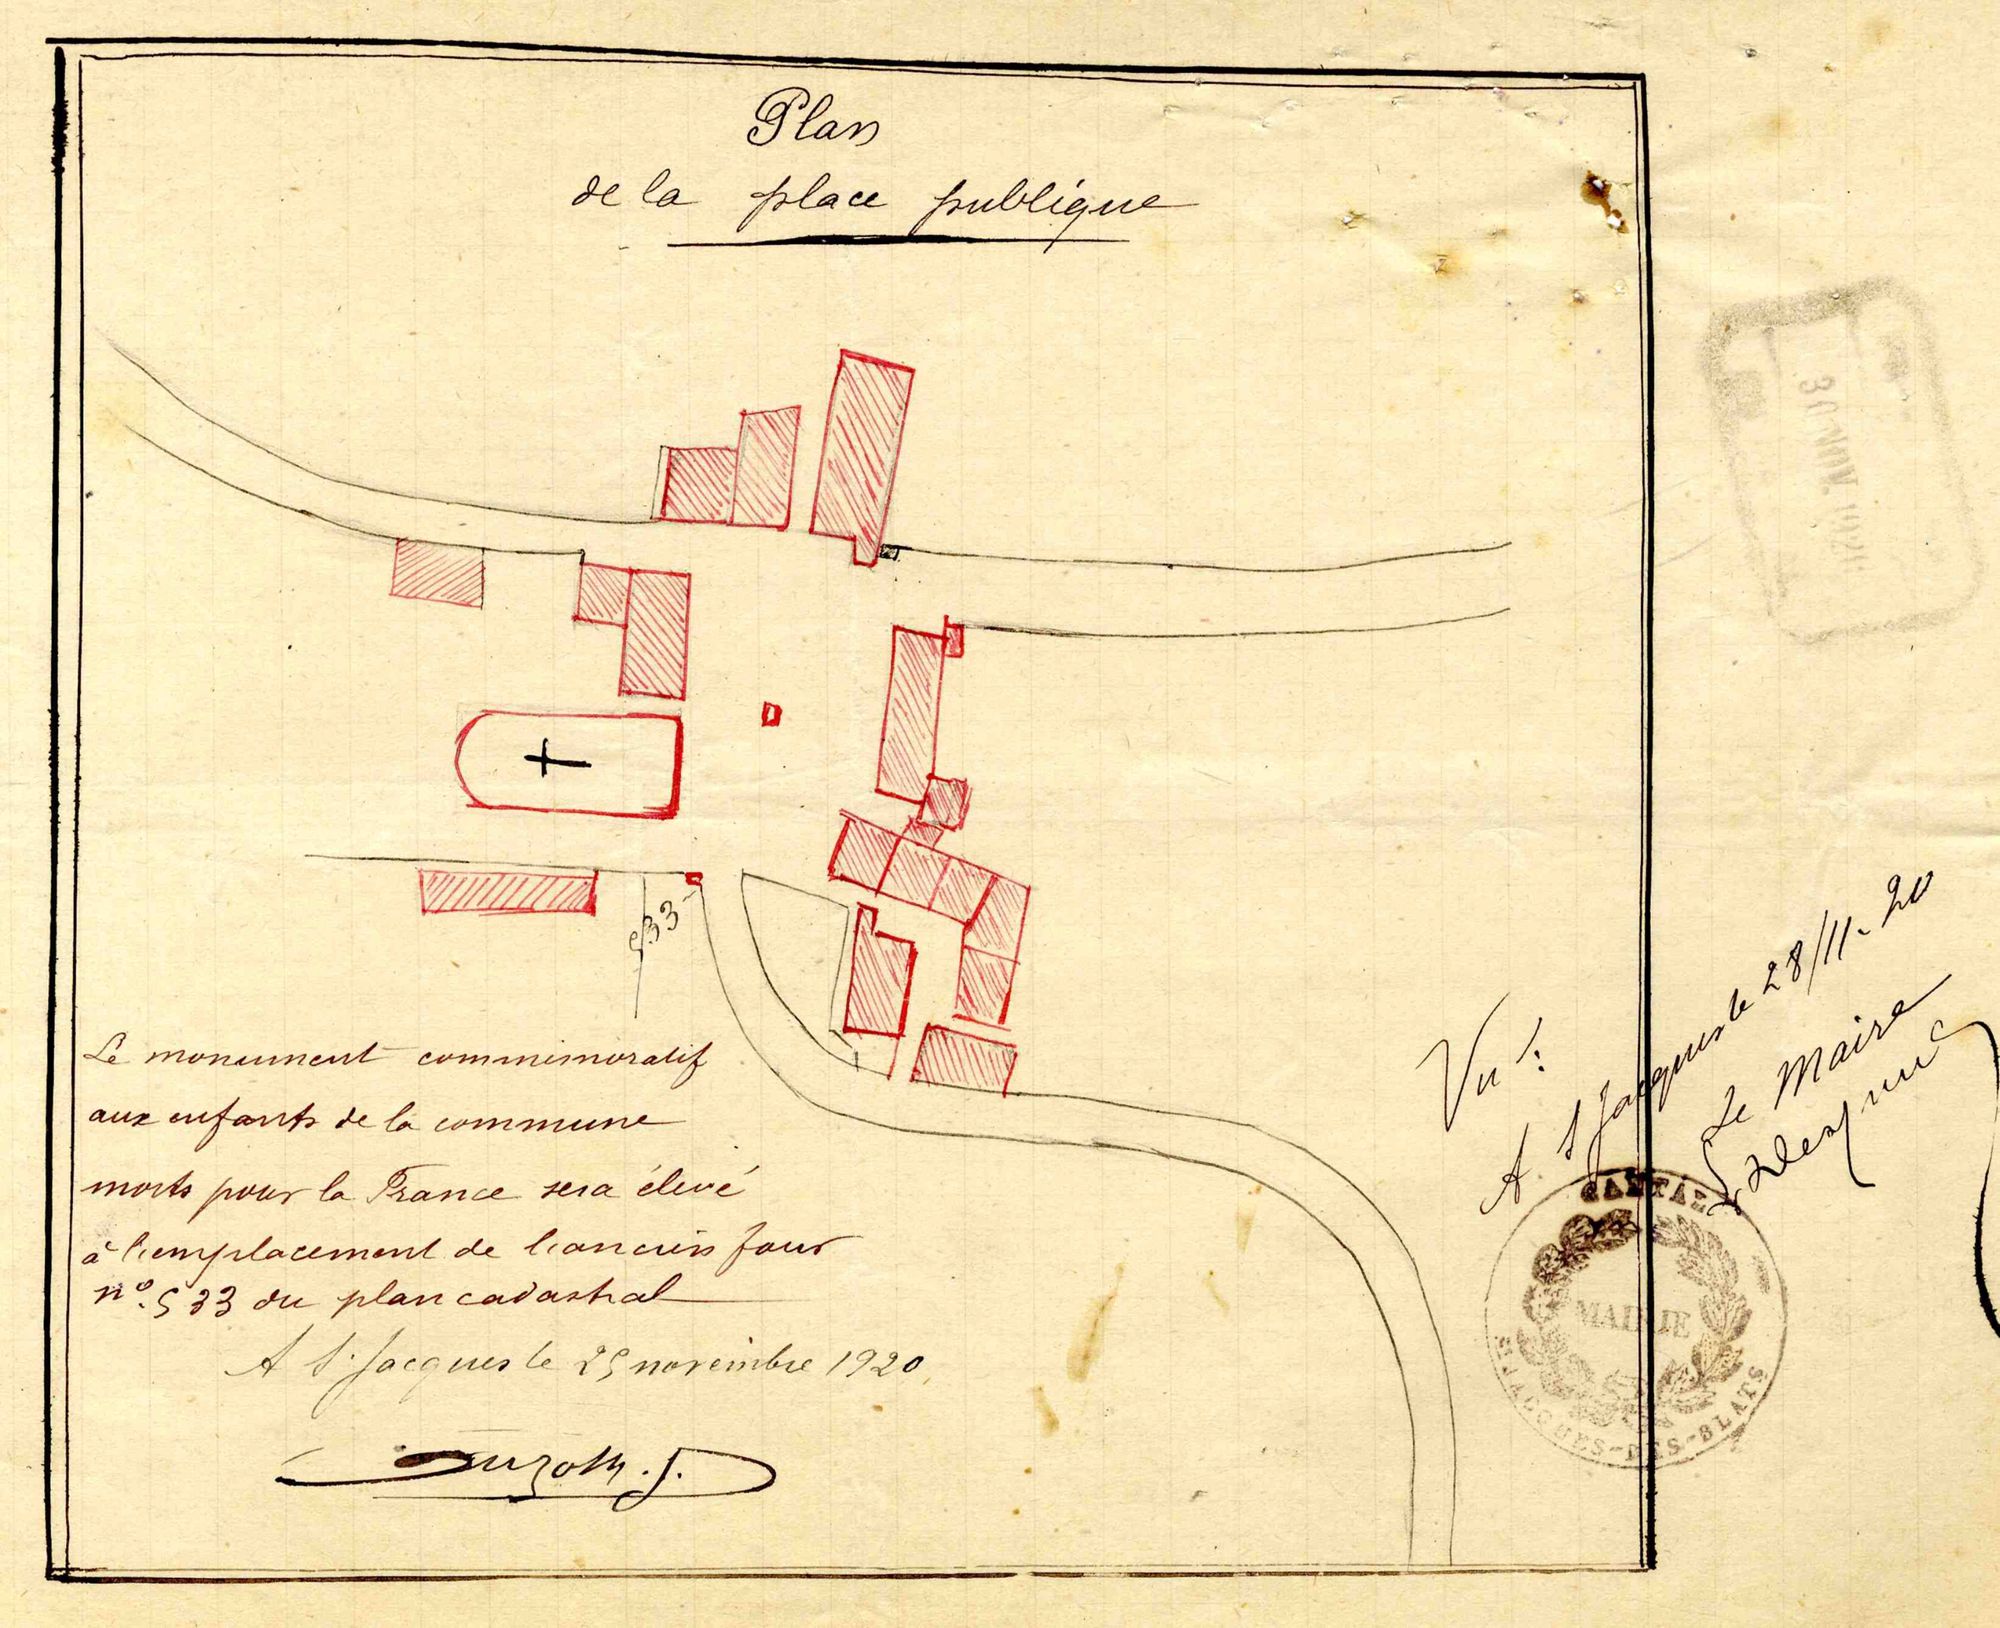 Plan
de la place publique
533
Le monument commémoratif
aux enfants de la commune
morts pour la France sera élevé
à l'emplacement de l'ancien four
n° 533 du plan cadastral
A St Jacques le 25 novembre 1920
Vu :
A St Jacques le 28/11-20
Le Maire
CANTAL
MAIRIE
ST JACQUES-DES-BLATS